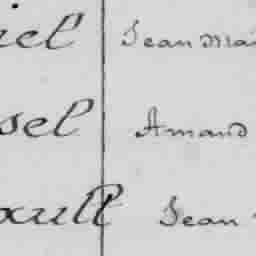 iel Jean mar
sel Amand
xult Jean